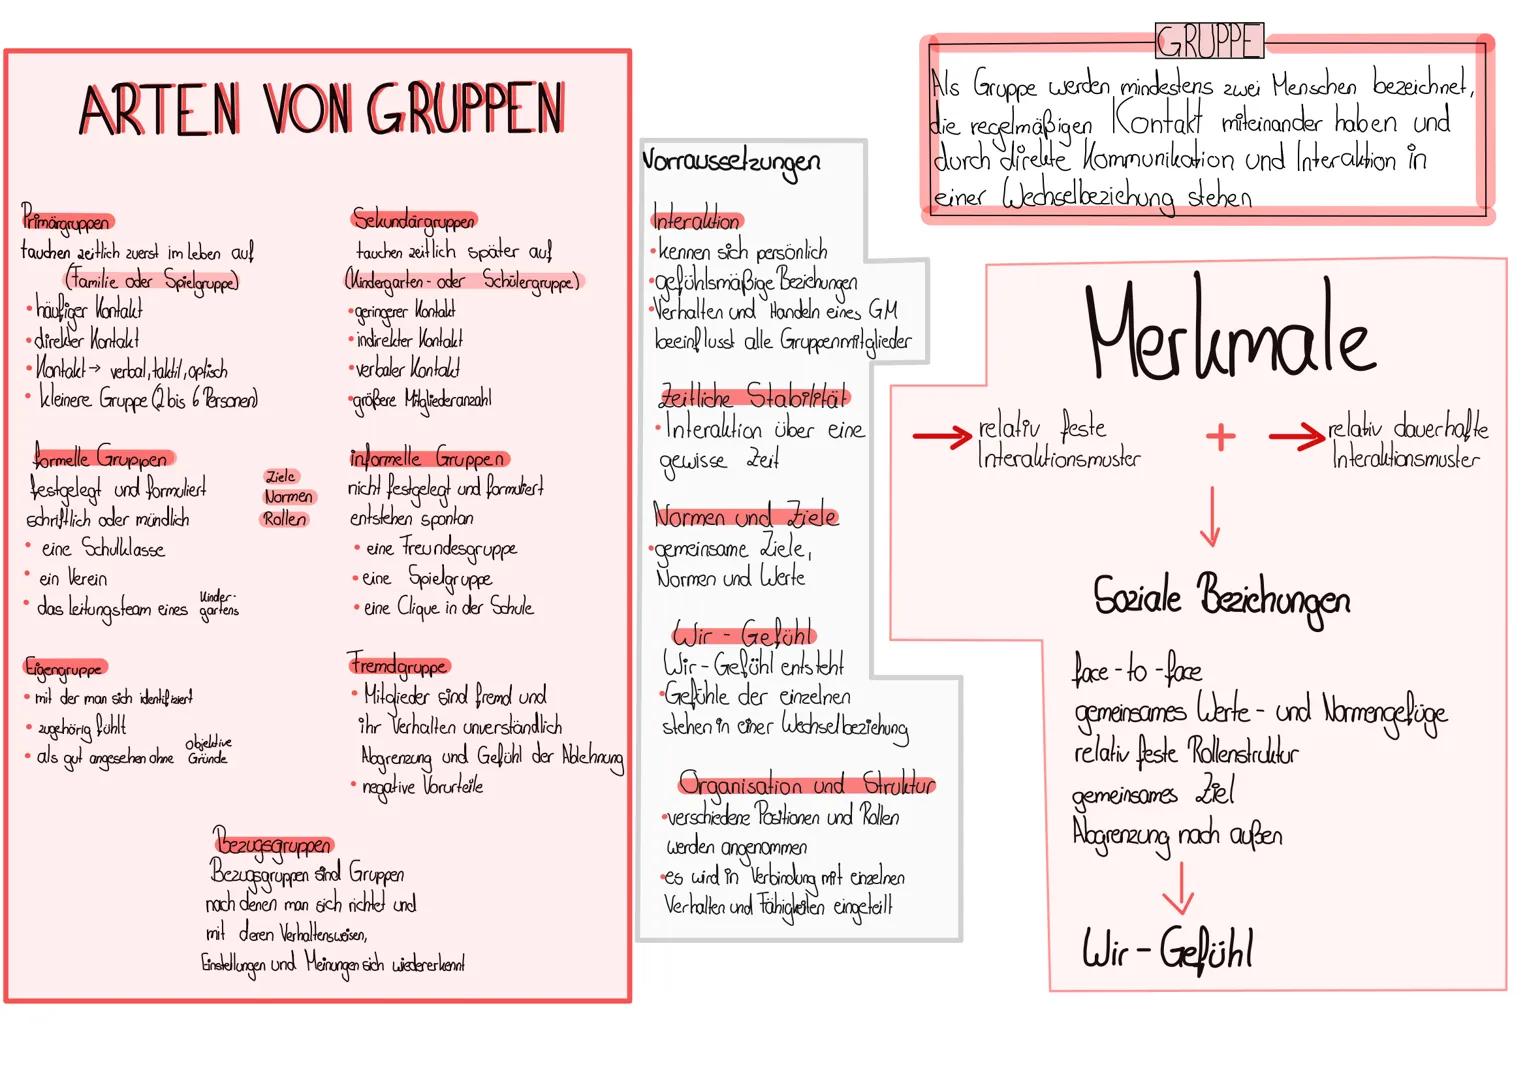 ARTEN VON GRUPPEN
Primärgruppen
tauchen zeitlich zuerst im Leben auf
(Familie oder Spielgruppe)
• häufiger Kontakt
• direkter Kontakt
• Kontakt → verbal, taktil, optisch
• kleinere Gruppe (2 bis 6 Personen)
Sekundärgruppen
tauchen zeitlich später auf
(Kindergarten- oder Schülergruppe)
• geringerer Kontakt
• indirekter Kontakt
• verbaler Kontakt
• größere Mitgliederanzahl
formelle Gruppen
festgelegt und formuliert
schriftlich oder mündlich
• eine Schulklasse
• ein Verein
• das Leitungsteam eines Kinder-
gartens
Ziele
Normen
Rollen
informelle Gruppen
nicht festgelegt und formuliert
entstehen spontan
• eine Freundesgruppe
• eine Spielgruppe
• eine Clique in der Schule
Eigengruppe
• mit der man sich identifiziert
• zugehörig fühlt
• als gut angesehen ohne objektive
Gründe
Fremdgruppe
• Mitglieder sind fremd und
ihr Verhalten unverständlich
Abgrenzung und Gefühl der Ablehnung
• negative Vorurteile
Bezugsgruppen
Bezugsgruppen sind Gruppen
nach denen man sich richtet und
mit deren Verhaltensweisen,
Einstellungen und Meinungen sich wiedererkennt
Vorraussetzungen
Interaktion
• kennen sich persönlich
• gefühlsmäßige Beziehungen
• Verhalten und Handeln eines GM
beeinflusst alle Gruppenmitglieder
Zeitliche Stabilität
• Interaktion über eine
gewisse Zeit
Normen und Ziele
• gemeinsame Ziele,
Normen und Werte
Wir - Gefühl
Wir - Gefühl entsteht
• Gefühle der einzelnen
stehen in einer Wechselbeziehung
Organisation und Struktur
• verschiedene Positionen und Rollen
werden angenommen
• es wird in Verbindung mit einzelnen
Verhalten und Fähigkeiten eingeteilt
GRUPPE
Als Gruppe werden mindestens zwei Menschen bezeichnet,
die regelmäßigen Kontakt miteinander haben und
durch direkte Kommunikation und Interaktion in
einer Wechselbeziehung stehen
Merkmale
→ relativ feste
Interaktionsmuster
+
→ relativ dauerhafte
Interaktionsmuster
Soziale Beziehungen
face - to - face
gemeinsames Werte - und Normengefüge
relativ feste Rollenstruktur
gemeinsames Ziel
Abgrenzung nach außen
Wir - Gefühl